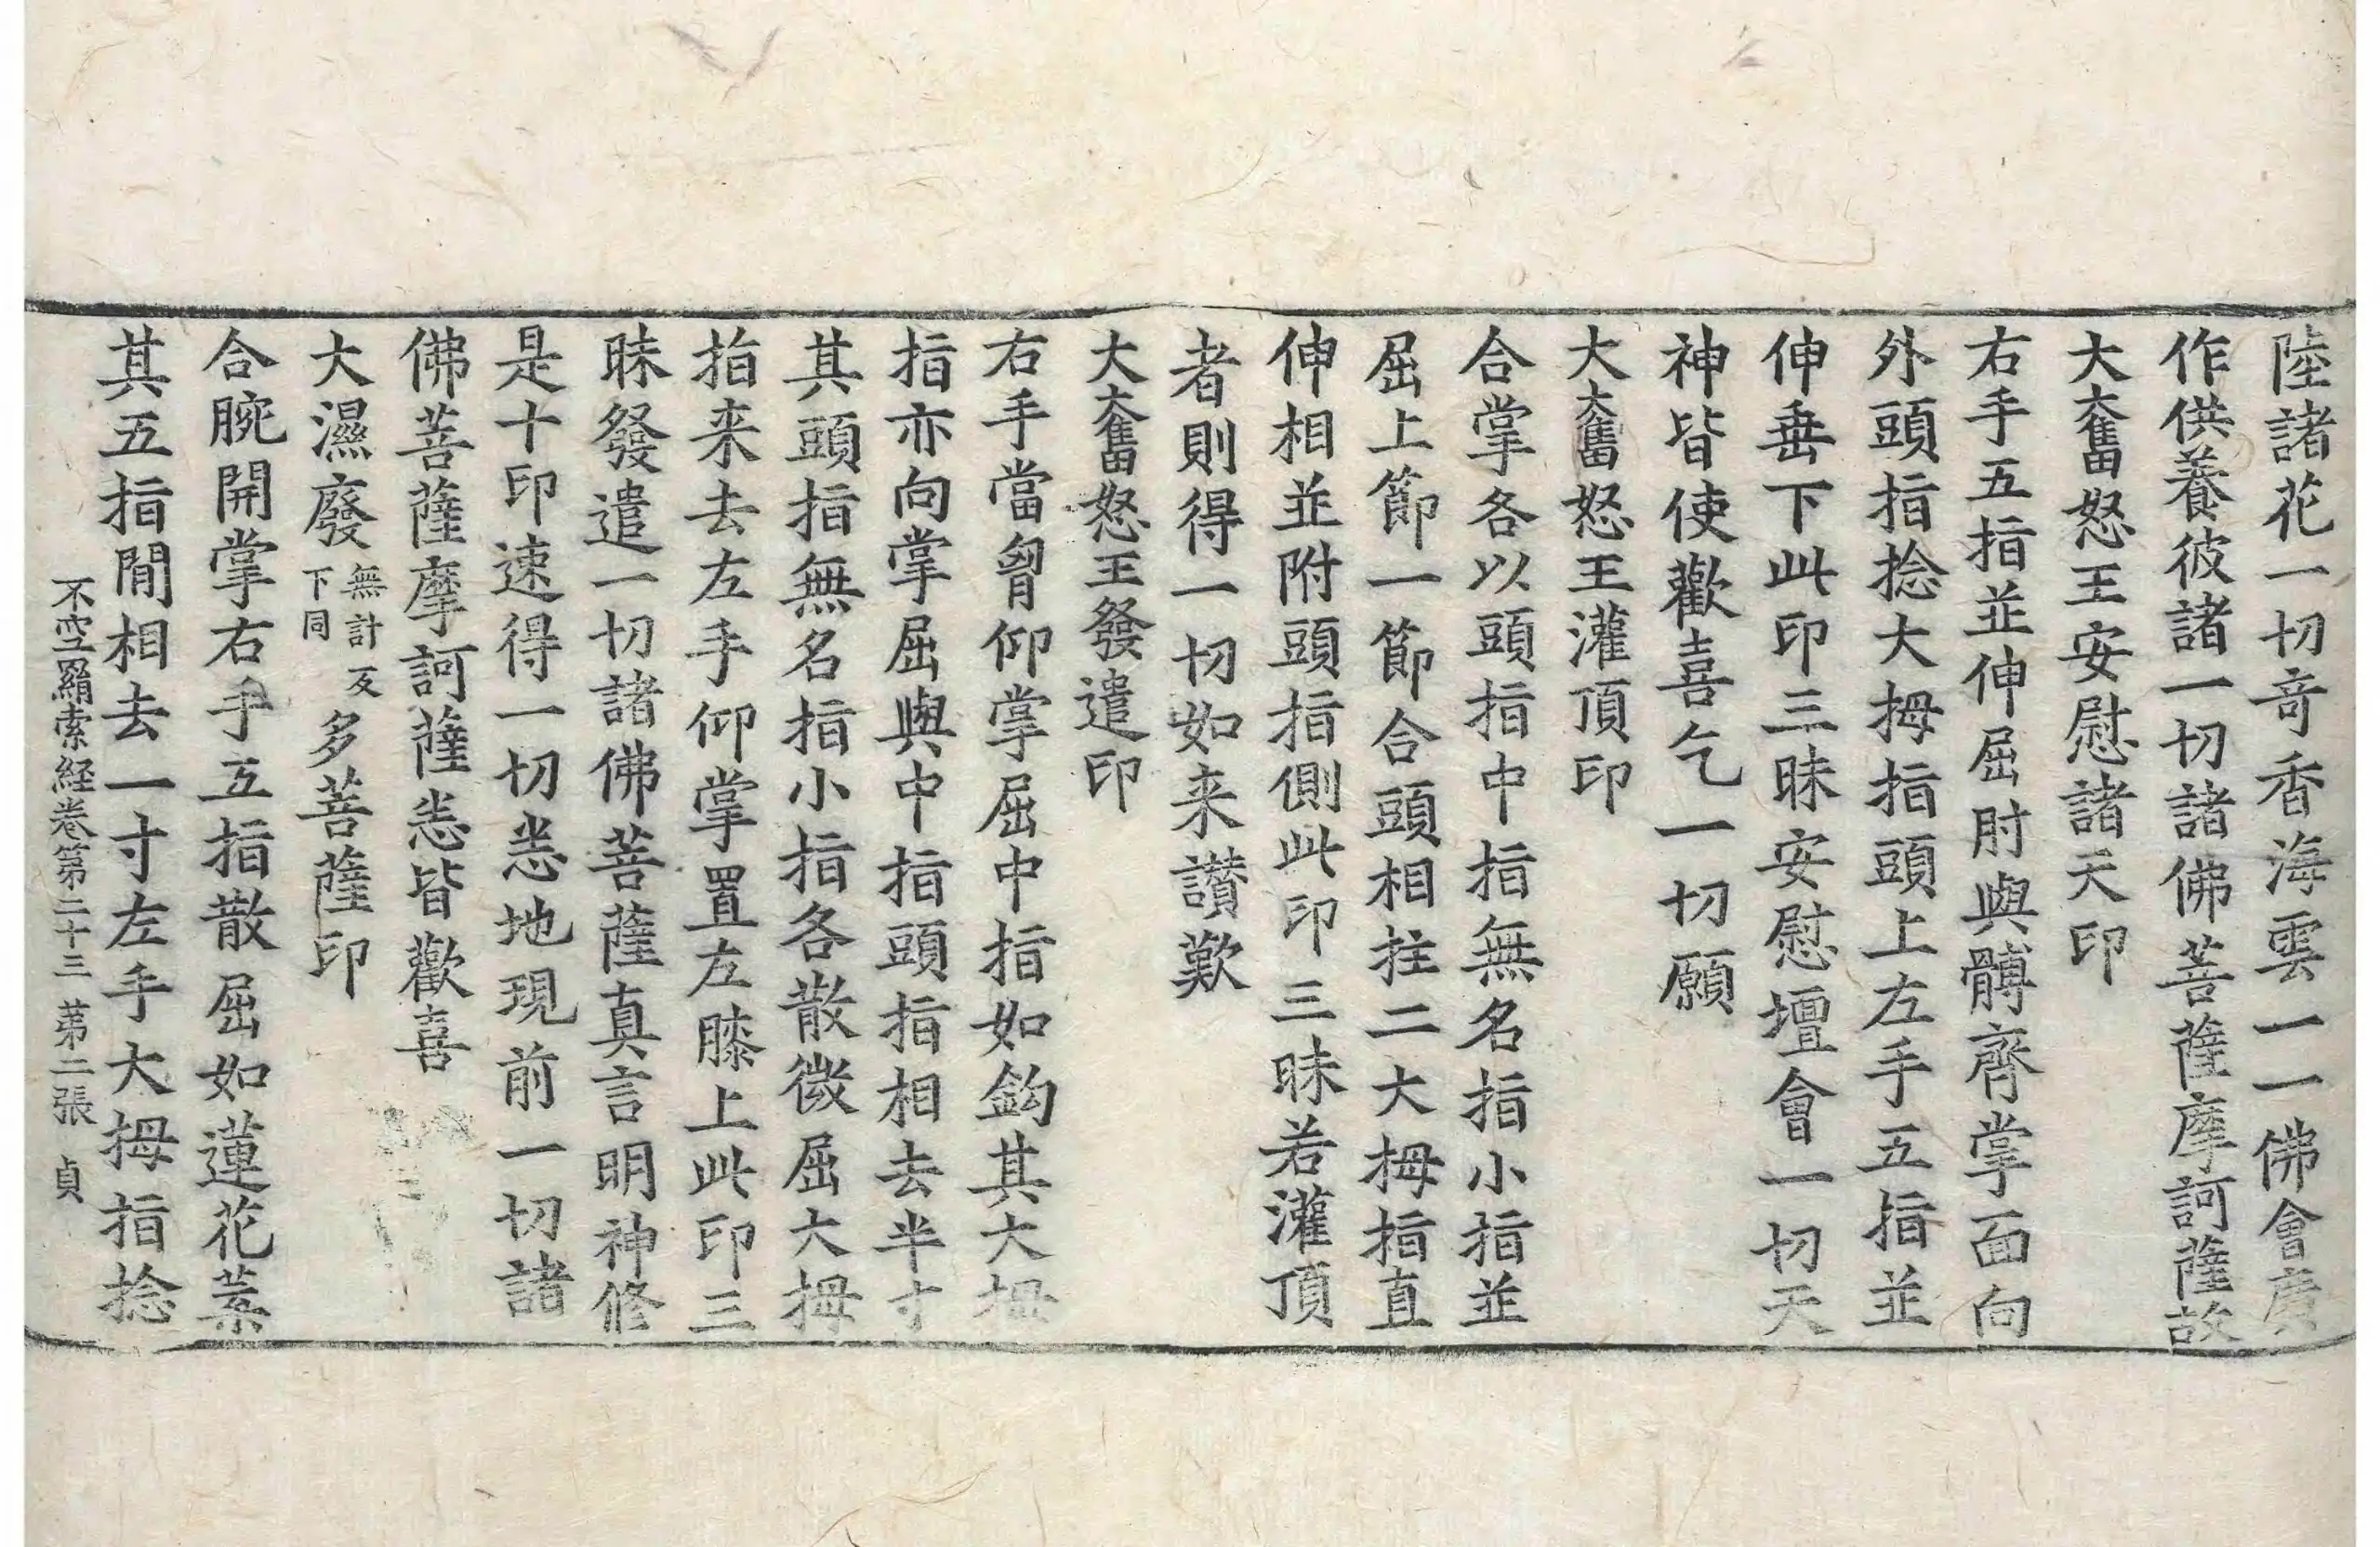 陸諸花一切竒香海雲一一佛會廣
作供養彼諸一切諸佛菩薩摩訶薩故
大奮怒王安慰諸天印
右手五指並伸屈肘與髆齊掌面向
外頭指捻大拇指頭上左手五指並
伸垂下此印三昧安慰壇會一切天
神皆使歡喜乞一切願
大奮怒王灌頂印
合掌各以頭指中指無名指小指並
屈上節一節合頭相拄二大拇指直
伸相並附頭指側此印三昧若灌頂
者則得一切如来讃歎
大奮怒王發遣印
右手當胷仰掌屈中指如鈎其大拇
指亦向掌屈與中指頭指相去半寸
其頭指無名指小指各散微屈大拇
指来去左手仰掌置左膝上此印三
昧發遣一切諸佛菩薩真言明神修
是十印速得一切悉地現前一切諸
佛菩薩摩訶薩悉皆歡喜
大濕廢無計反下同多菩薩印
合腕開掌右手五指散屈如蓮花葉
其五指閒相去一寸左手大拇指捻
不空羂索経卷第二十三 第二張 貞